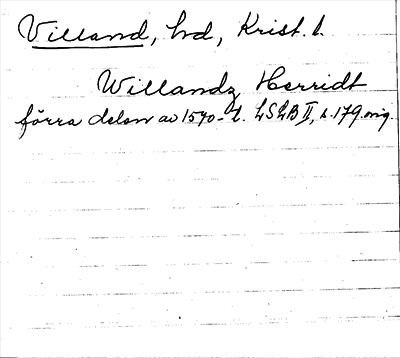 Villand, hd, Krist. l.
Willandz Herridt
förra delen av 1570-t. LSLB II, s. 179 orig.